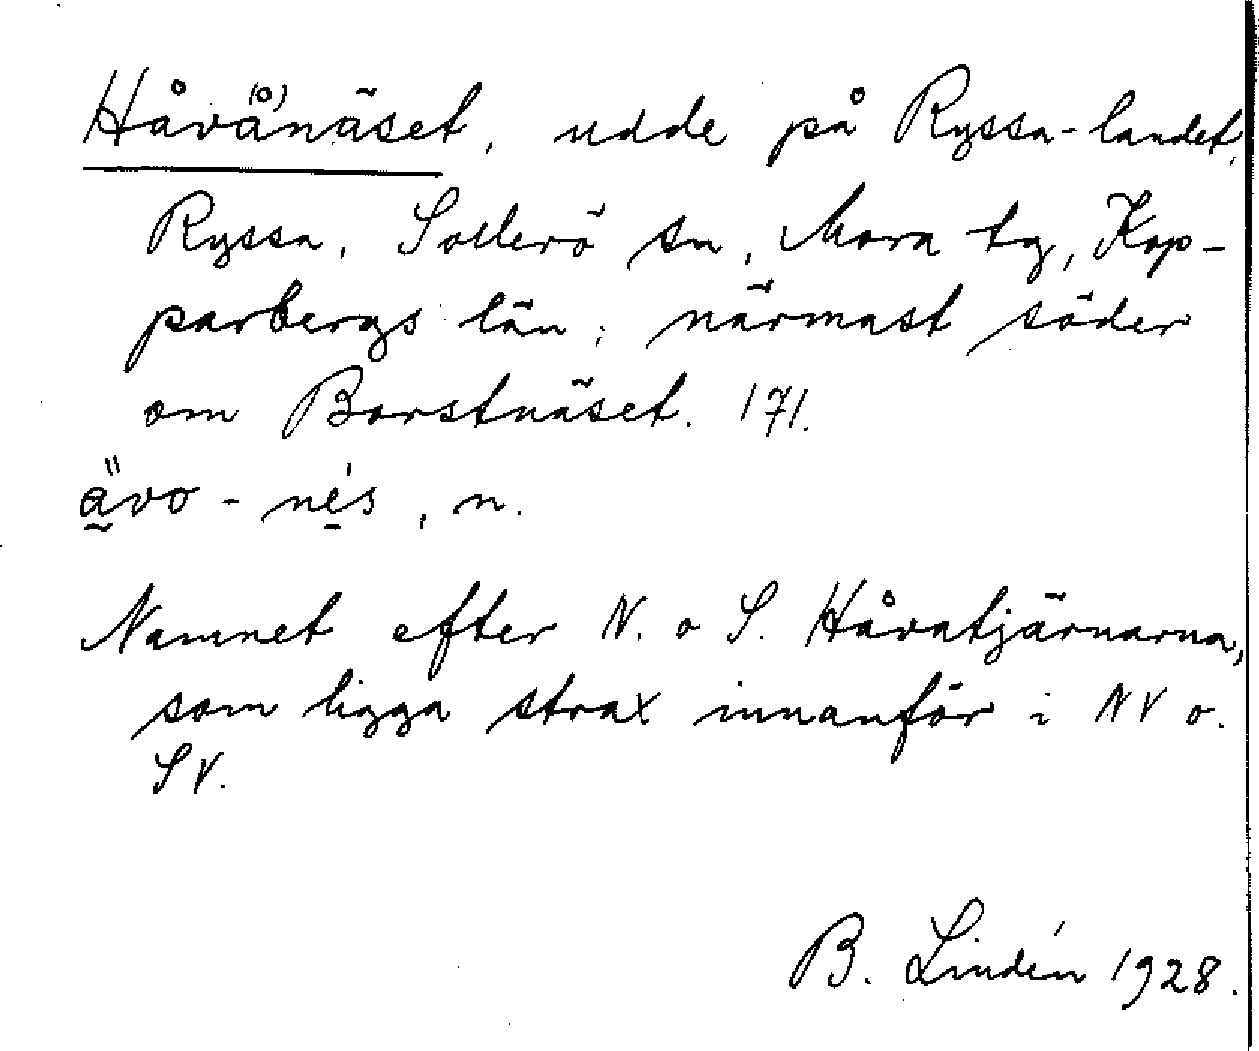 Håva(°)näset, udde på Ryssa-landet,
Ryssa, Sollerö sn, Mora tg, Kop-
parbergs län; närmast söder
om Borstnäset. 171.
ävo - nés, n.
Namnet efter N. o S. Håvatjärnarna,
som ligga strax innanför i NV o.
SV.
B. Lindén 1928.